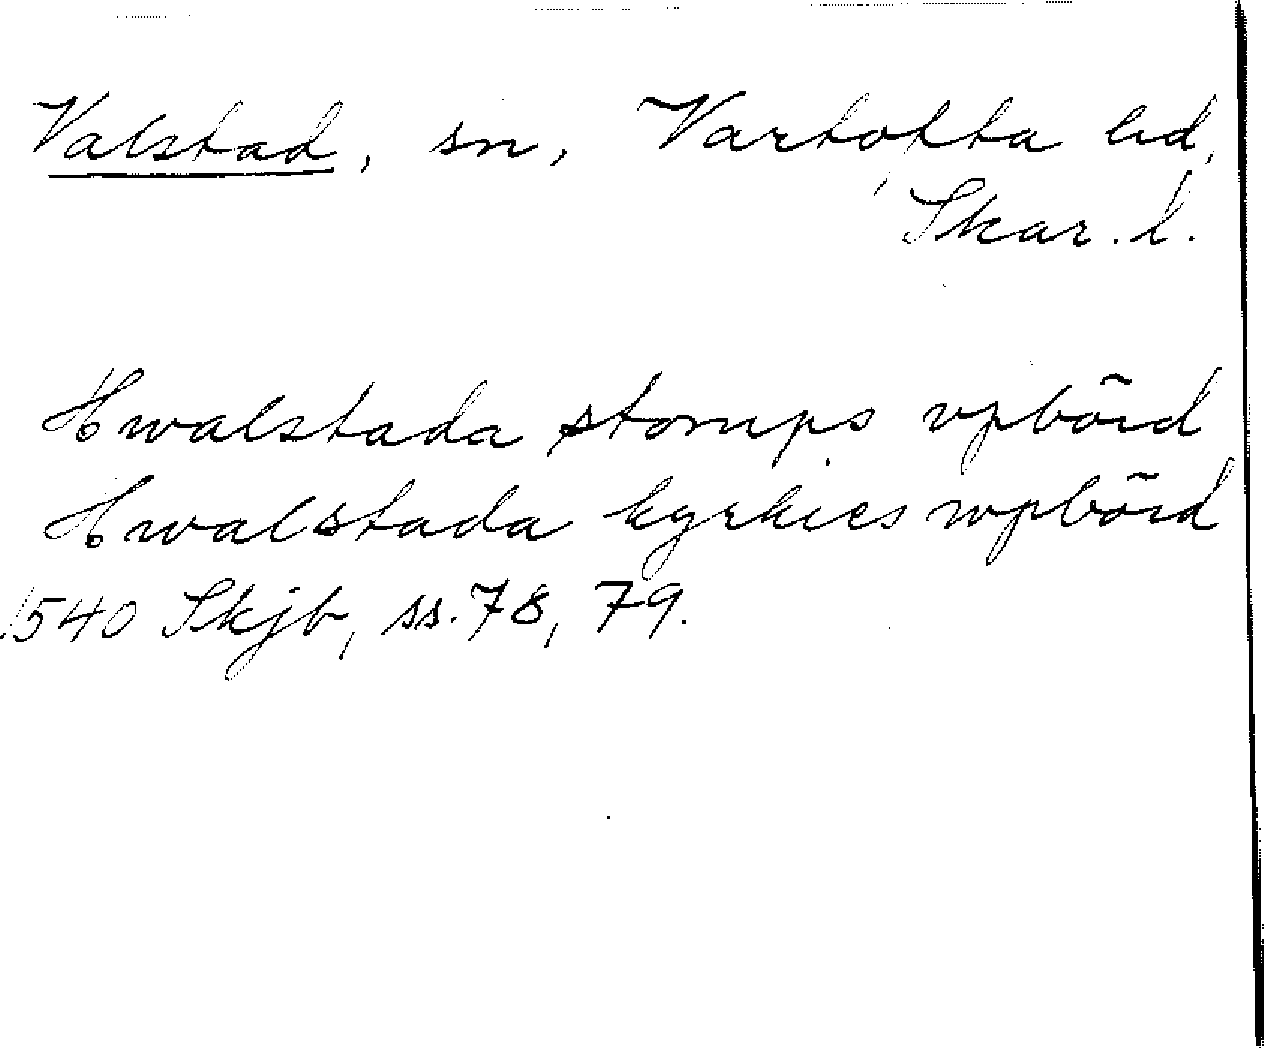 Valstad, sn, Vartofta hd,
Skar. l.
Hwalstada stomps vpbörd
Hwalstada kyrkies wpbörd
1540 Skjb, ss. 78, 79.